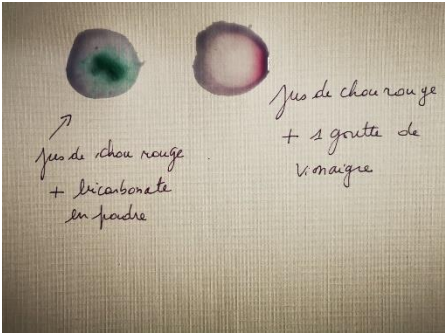 jus de chou rouge
+ bicarbonate
en poudre
jus de chou rouge
+ 1 goutte de
vinaigre